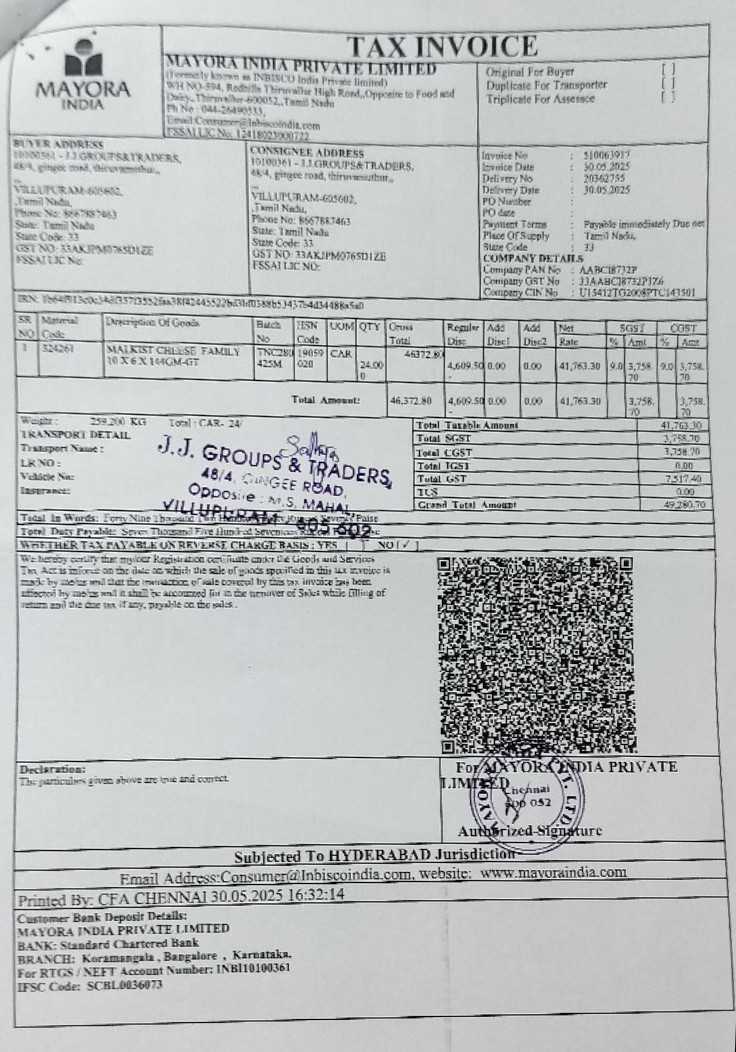 MAYORA
INDIA
TAX INVOICE
MAYORA INDIA PRIVATE LIMITED
(Formerly known as INBISCO India Private limited)
WH NO-594, Redhills Thiruvallur High Road,,Opposite to Food and
Dairy,,Thiruvallur-600052,,Tamil Nadu
Ph No : 044-26490533,
Email:Consumer@Inbiscoindia.com
FSSAI LIC No. 12418023000722
Original For Buyer [ ]
Duplicate For Transporter [ ]
Triplicate For Assesce [ ]
BUYER ADDRESS
10100361 - J.J.GROUPS&TRADERS,
48/4, gingee road, thiruvamathur,,
,,
VILLUPURAM-605602,
,Tamil Nadu,
Phone No: 8667887463
State: Tamil Nadu
State Code: 33
GST NO: 33AKJPM0765D1ZE
FSSAI LIC No:
CONSIGNEE ADDRESS
10100361 - J.J.GROUPS&TRADERS,
48/4, gingee road, thiruvamathur,,
,,
VILLUPURAM-605602,
,Tamil Nadu,
Phone No: 8667887463
State: Tamil Nadu
State Code: 33
GST NO: 33AKJPM0765D1ZE
FSSAI LIC NO:
Invoice No : 510063917
Invoice Date : 30.05.2025
Delivery No : 20362755
Delivery Date : 30.05.2025
PO Number :
PO date :
Payment Terms : Payable immediately Due net
Place Of Supply : Tamil Nadu,
State Code : 33
COMPANY DETAILS
Company PAN No : AABCI8732P
Company GST No : 33AABCI8732P1Z6
Company CIN No : U15412TG2008PTC143501
IRN:
SR NO Material Code Description Of Goods Batch No HSN Code UOM QTY Gross Total Regular Disc Add Disc1 Add Disc2 Net Rate SGST % Amt CGST % Amt
1 324261 MALKIST CHEESE FAMILY 10 X 6 X 144GM-GT TNC280425M 19059020 CAR 24.000 46372.80 4,609.50- 0.00 0.00 41,763.30 9.0 3,758.70 9.0 3,758.70
Total Amount: 46,372.80 4,609.50- 0.00 0.00 41,763.30 3,758.70 3,758.70
Weight : 259.200 KG Total : CAR- 24/
TRANSPORT DETAIL
Transport Name :
LR NO :
Vehicle No:
Insurance:
J.J. GROUPS & TRADERS,
48/4, GINGEE ROAD,
Opposite : M.S. MAHAL,
VILLUPURAM - 605 602
Total Taxable Amount 41,763.30
Total SGST 3,758.70
Total CGST 3,758.70
Total IGST 0.00
Total GST 7,517.40
TCS 0.00
Grand Total Amount 49,280.70
Total In Words: Forty Nine Thousand Two Hundred Seventy Paise
Total Duty Payable: Seven Thousand Five Hundred Seventeen
WHETHER TAX PAYABLE ON REVERSE CHARGE BASIS : YES [ ] NO [✓]
We hereby certify that my/our Registration certificate under the Goods and Services
Tax Act is inforce on the date on which the sale of goods specified in this tax invoice is
made by me/us and that the transaction of sale covered by this tax invoice has been
affected by me/us and it shall be accounted for in the turnover of Sales while filling of
return and the due tax if any, payable on the sales .
Declaration:
The particulars given above are true and correct.
For MAYORA INDIA PRIVATE
LIMITED
Chennai
600 052
Authorized Signature
Subjected To HYDERABAD Jurisdiction
Email Address:Consumer@Inbiscoindia.com, website: www.mayoraindia.com
Printed By: CFA CHENNAI 30.05.2025 16:32:14
Customer Bank Deposit Details:
MAYORA INDIA PRIVATE LIMITED
BANK: Standard Chartered Bank
BRANCH: Koramangala , Bangalore , Karnataka.
For RTGS / NEFT Account Number: INBI10100361
IFSC Code: SCBL0036073